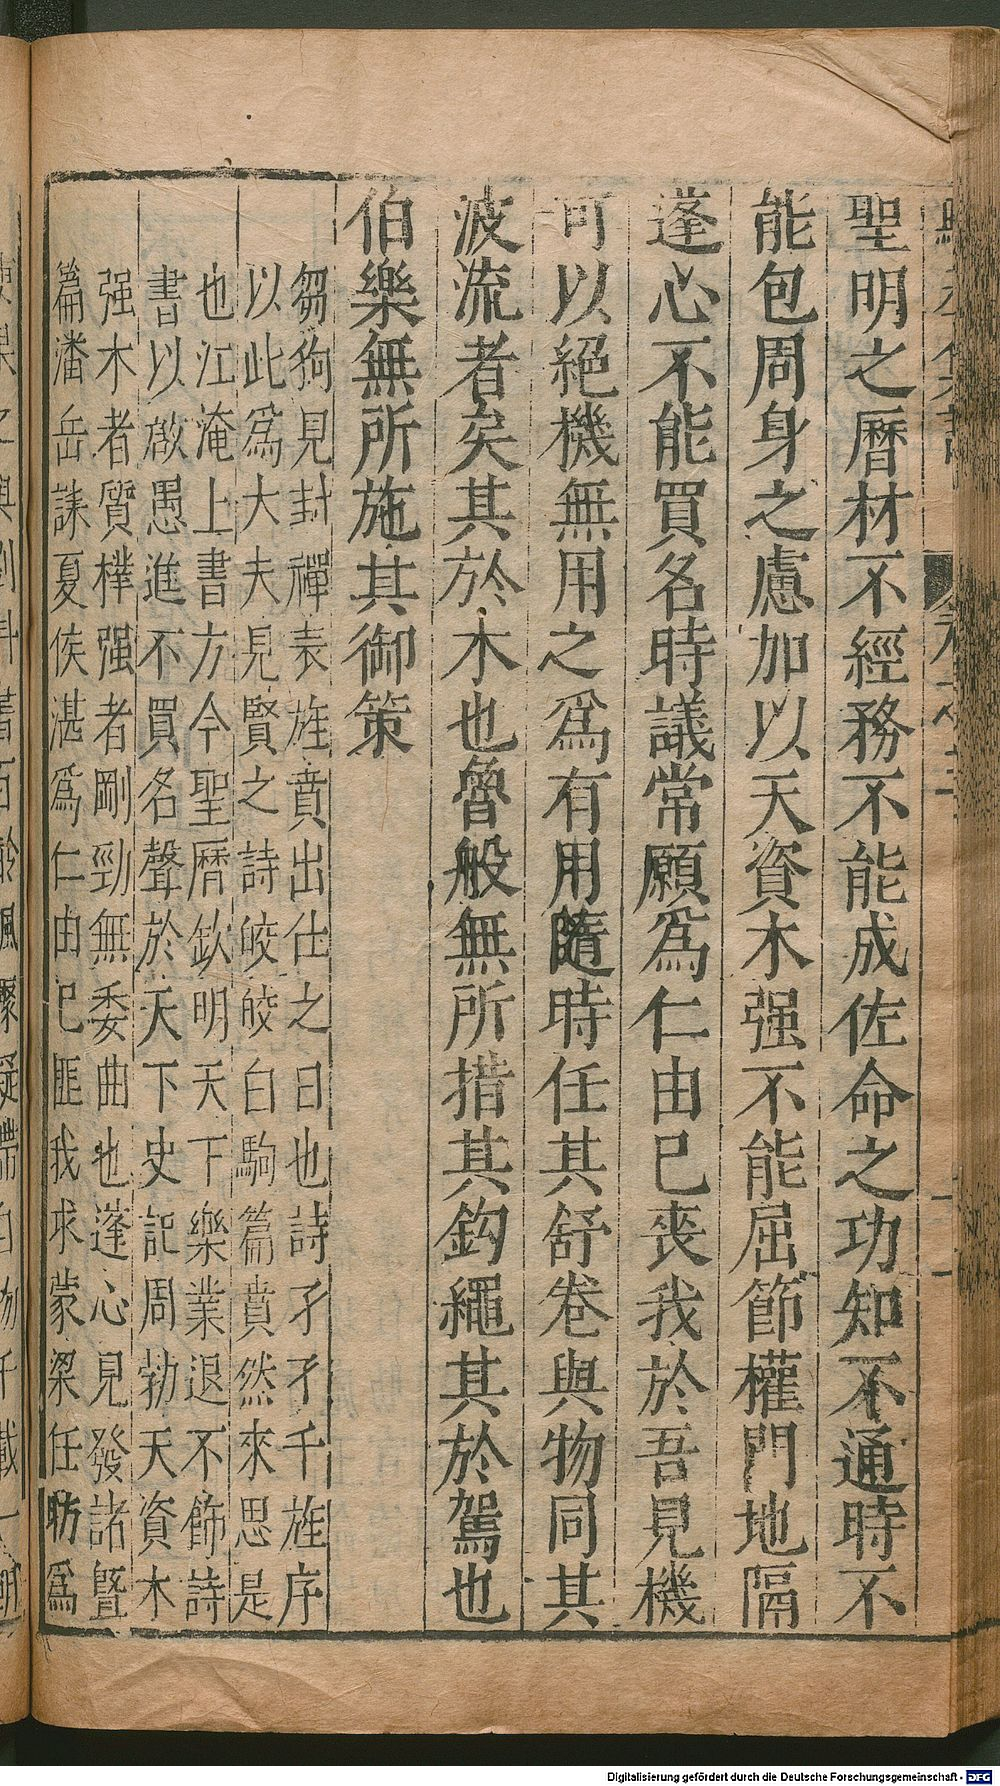 聖明之曆材不經務不能成佐命之功知不通時不
能包周身之慮加以天資木强不能屈節權門地隔
蓬心不能買名時議常願爲仁由已喪我於吾見機
可以絕機無用之爲有用隨時任其舒卷與物同其
波流者矣其於木也魯般無所措其鈎繩其於駕也
伯樂無所施其御策
芻狗見封禪表旌賁出仕之日也詩孑孑千旌序
以此爲大夫見賢之詩皎皎白駒篇賁然來思是
也江淹上書方今聖曆欽明天下樂業退不飾詩
書以啟愚進不買名聲於天下史記周勃天資木
强木者質樸强者剛勁無委曲也蓬心見發諸曁
篇潘岳誄夏侯湛爲仁由已匪我求蒙梁任昉爲
Digitalisierung gefördert durch die Deutsche Forschungsgemeinschaft - DFG